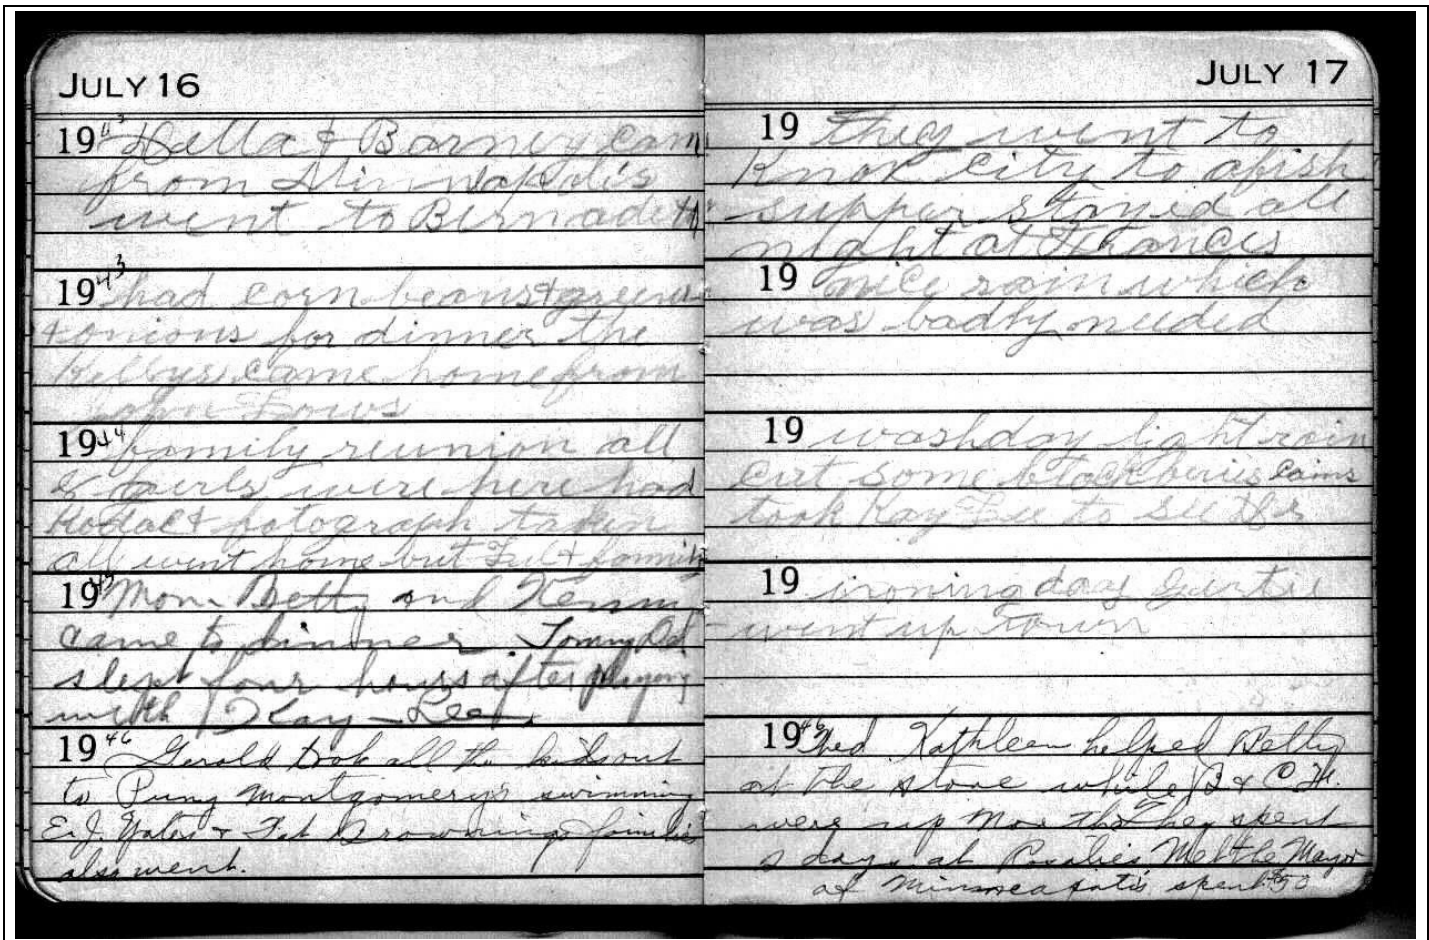 JULY 16
19 Della & Barney came
from Minnapolis
went to Bernadette
1943 had corn beans & greens
& onions for dinner the
Kelbys came home from
John
1944 family reunion all
8 girls were here had
Kodac & fotograph taken
all went home but & family
1945 Mon. Betty and Kenny
came to dinner. Tommy
slept four hours after playing
with Kay-Lee.
1946 Gerald took all the kids out
to Montgomery's swimming
E.J. Yates & Browning families
also went.
JULY 17
19 They went to
Knox City to a fish
supper stayed all
night at Francis
19 nice rain which
was badly needed
19 washday light rain
cut some black berries
took Kay Lee to see Dr
19 ironing day Gertie
went up town
1946 Wed Kathleen helped Betty
at the store while B & C.H.
were up North They spent
days at Rosalie's Met the Mayor
of Minneapolis spent $50